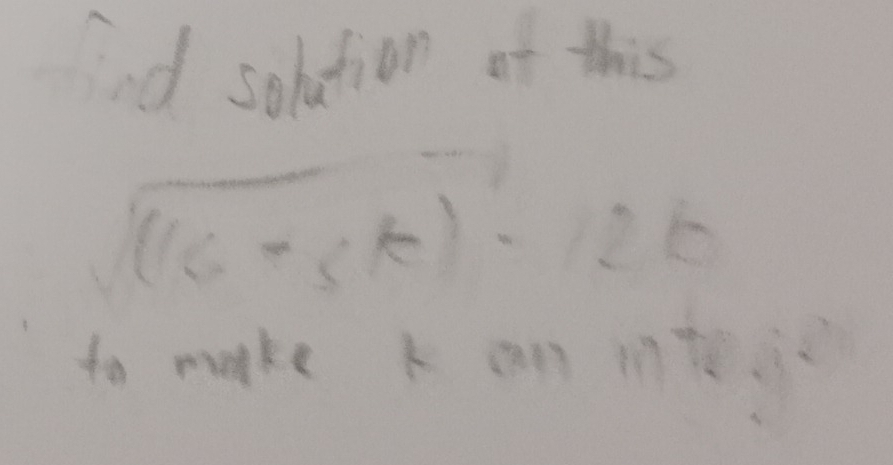 find solution of this
√(16 - 5k) - 12k
to make k an integer